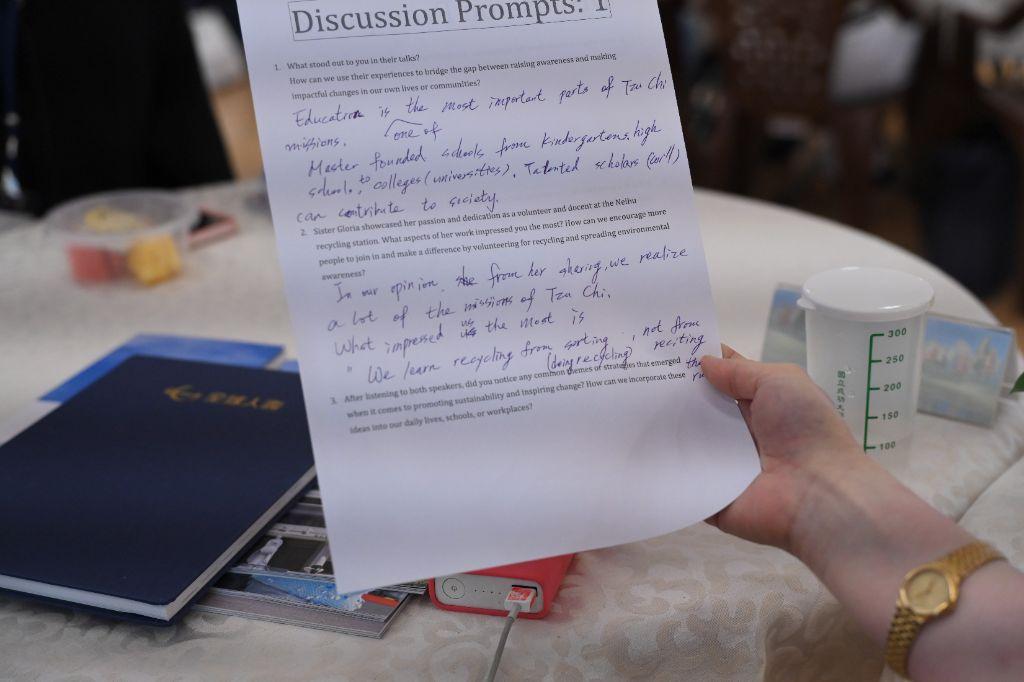 Discussion Prompts: 1
1. What stood out to you in their talks?
How can we use their experiences to bridge the gap between raising awareness and making
impactful changes in our own lives or communities?
Education is the most important parts of Tzu Chi
missions. one of
Master founded schools from kindergartens, high
schools, to colleges (universities). Talented scholars
can contribute to society.
2. Sister Gloria showcased her passion and dedication as a volunteer and docent at the Neihu
recycling station. What aspects of her work impressed you the most? How can we encourage more
people to join in and make a difference by volunteering for recycling and spreading environmental
awareness?
In our opinion, from her sharing, we realize
a lot of the missions of Tzu Chi.
What impressed us the most is
" We learn recycling from sorting, not from
(doing recycling) reciting
the
3. After listening to both speakers, did you notice any common themes or strategies that emerged
when it comes to promoting sustainability and inspiring change? How can we incorporate these
ideas into our daily lives, schools, or workplaces?
300
250
200
150
100